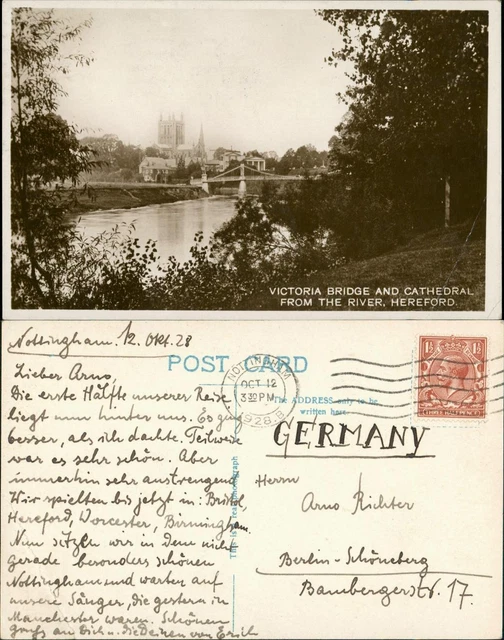 VICTORIA BRIDGE AND CATHEDRAL
FROM THE RIVER, HEREFORD.
Nottingham. 12. Okt. 28
POST CARD
NOTTINGHAM
OCT 12
3 32 PM
1928.B
The ADDRESS only to be
written here
This is a real photograph
Lieber Arno,
Die erste Hälfte unserer Reise
liegt nun hinter uns. Es ging
besser, als ich dachte. Teilweise
war es sehr schön. Aber
immerhin sehr anstrengend.
Wir spielten bis jetzt in: Bristol,
Hereford, Worcester, Birmingham.
Nun sitzen wir in dem nicht
gerade besonders schönen
Nottingham und warten auf
unsere Sänger, die gestern in
Manchester waren. Schönen
Gruß an Dich u. die Deinen von Erich
GERMANY
Herrn
Arno Richter
Berlin-Schöneberg
Bambergerstr. 17.